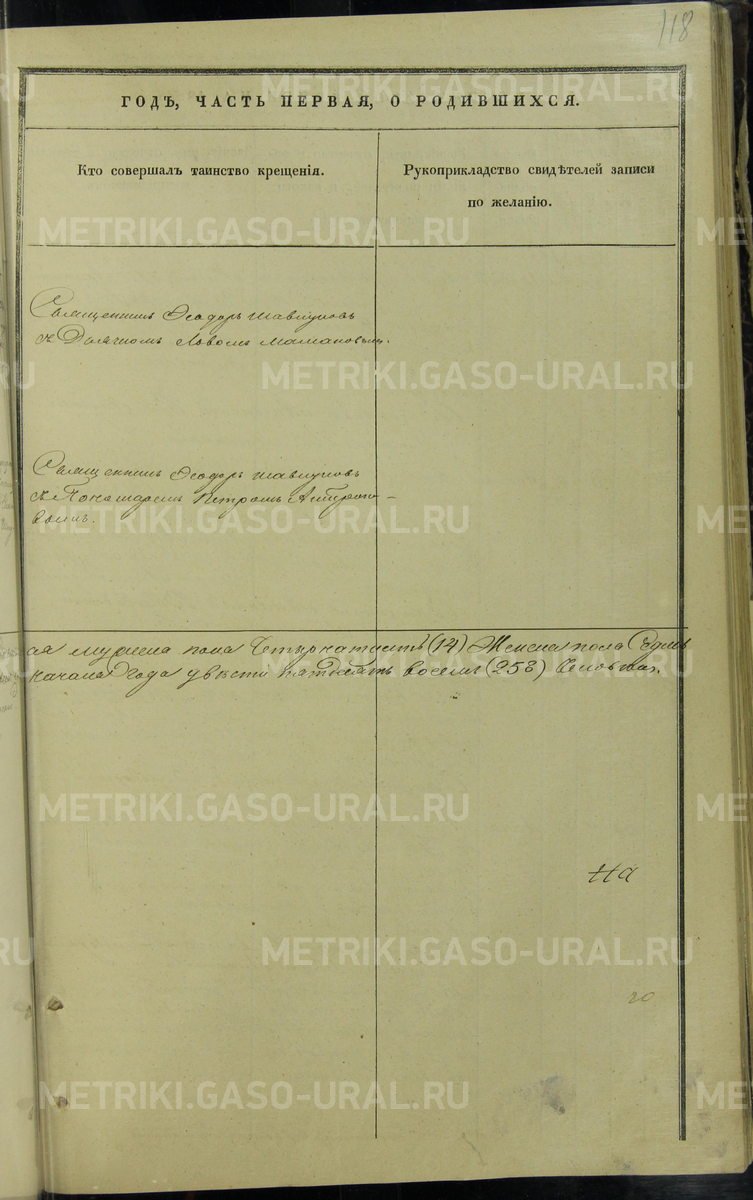 118
ГОДЪ, ЧАСТЬ ПЕРВАЯ, О РОДИВШИХСЯ.
Кто совершалъ таинство крещенія.
Рукоприкладство свидѣтелей записи
по желанію.
Священникъ Ѳеодоръ Шавкуновъ
съ Дьячкомъ Львомъ
Священникъ Ѳеодоръ Шавкуновъ
съ Пономаремъ Петромъ
вымъ.
ая мужеска пола Четырнатцать (14) Женска пола
начала года двѣсти пятдесятъ восемь (258) Человѣкъ.
На
20
METRIKI.GASO-URAL.RU